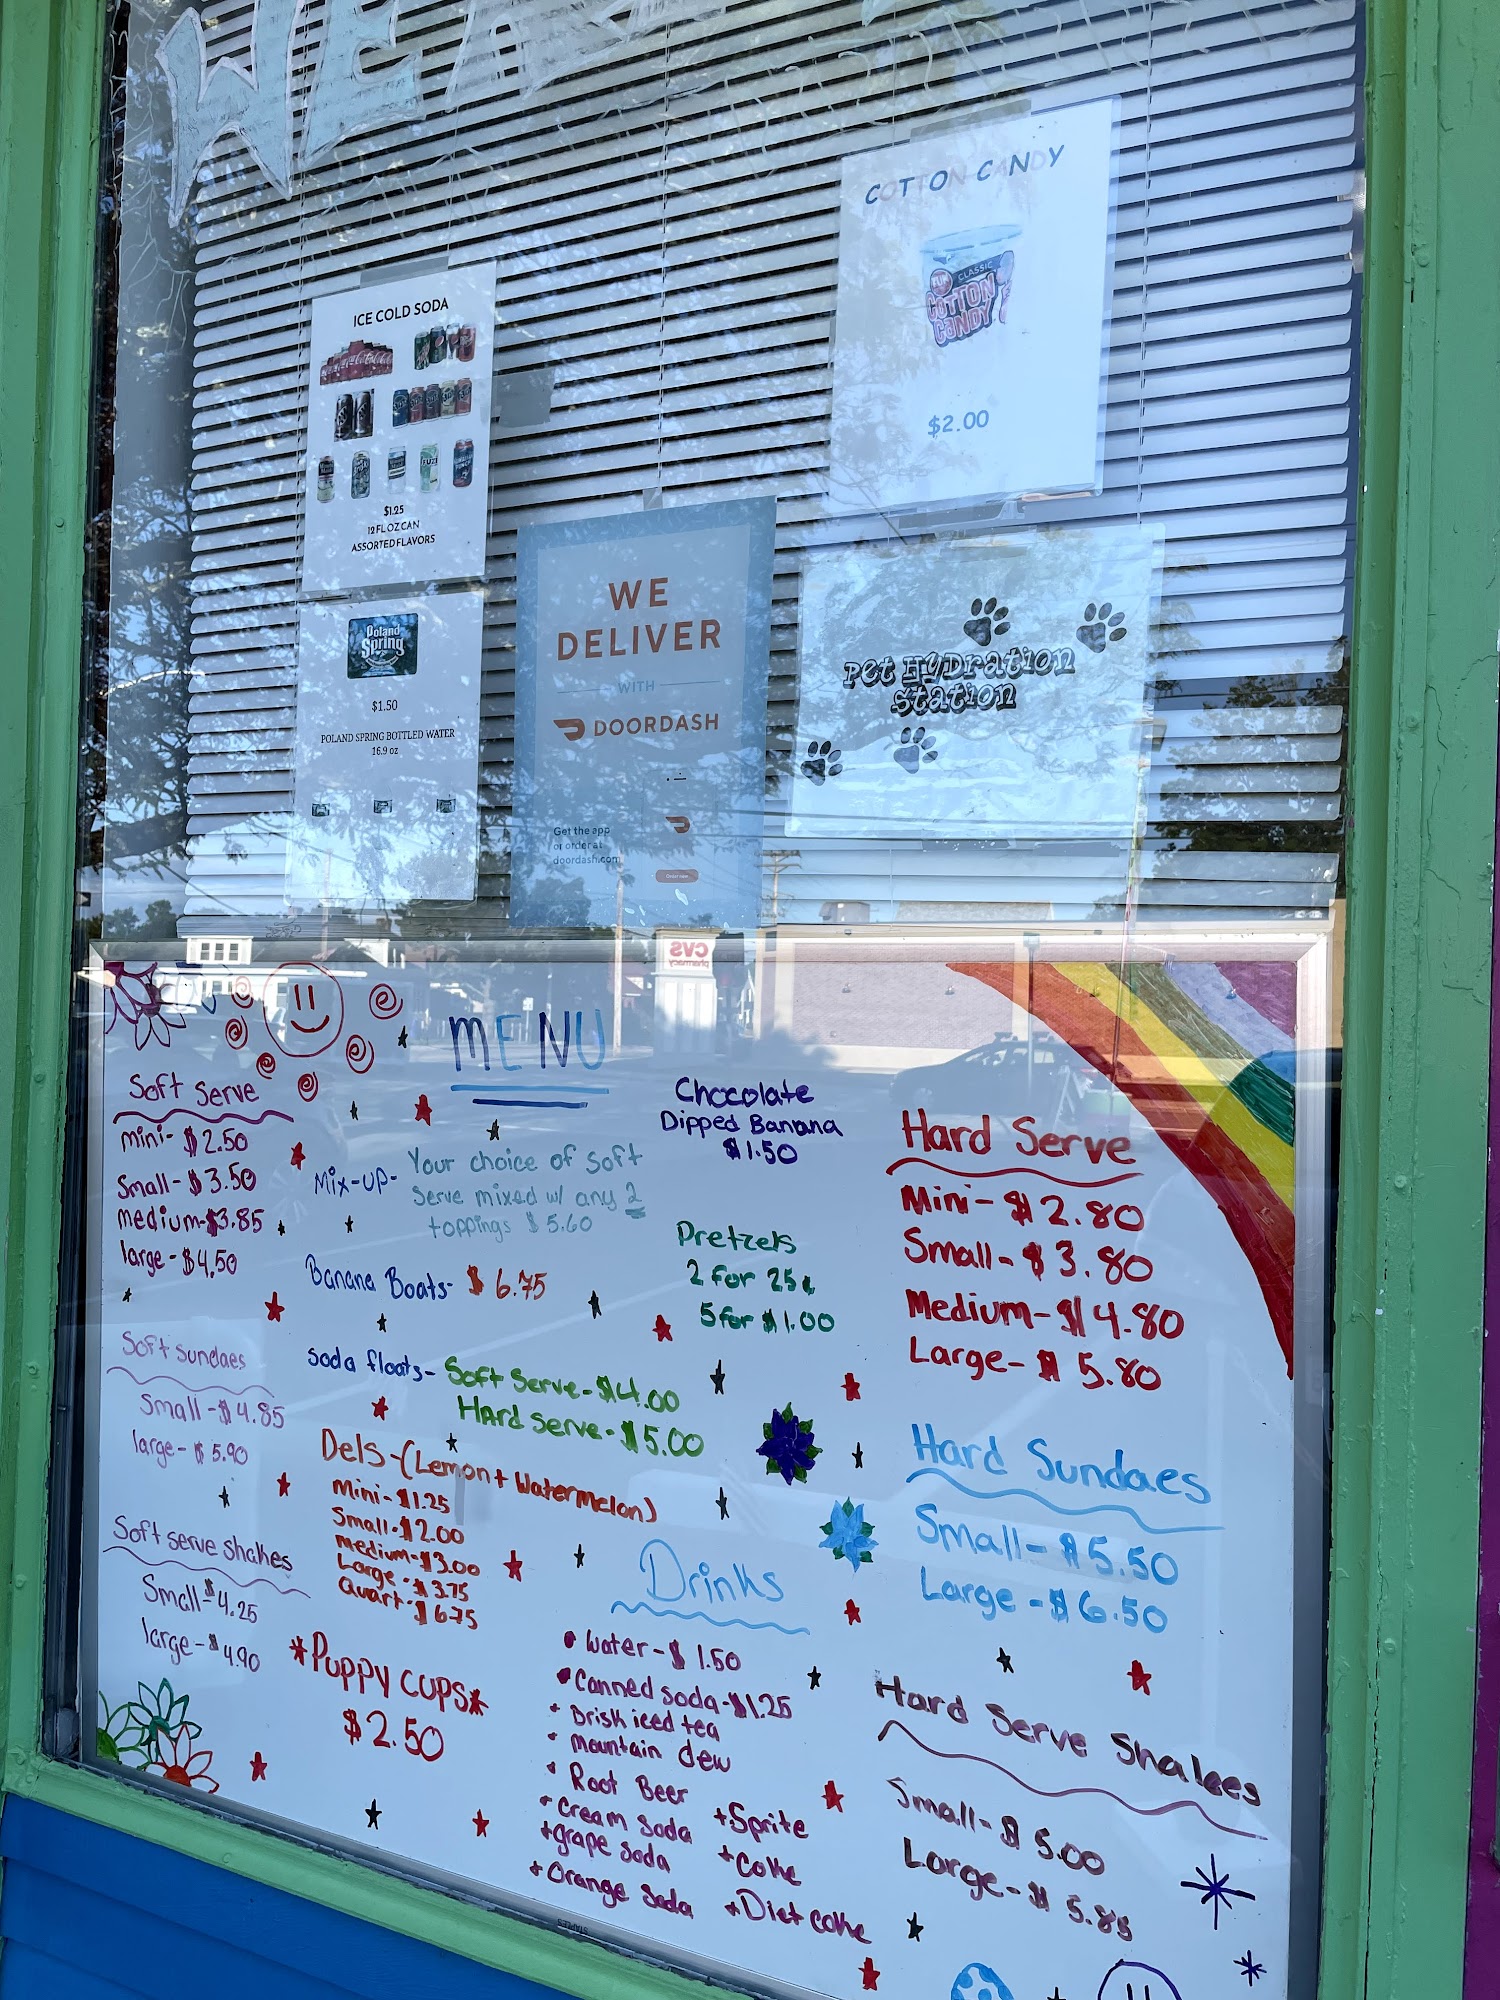 WE
COTTON CANDY
CLASSIC
COTTON
CANDY
$2.00
ICE COLD SODA
$1.25
12 FL OZ CAN
ASSORTED FLAVORS
Poland
Spring
$1.50
POLAND SPRING BOTTLED WATER
16.9 oz
WE
DELIVER
WITH
DOORDASH
Get the app
or order at
doordash.com
Order now
Pet Hydration
Station
CVS
pharmacy
MENU
Soft Serve
mini- $2.50
Small- $3.50
medium-$3.85
large- $4.50
Soft sundaes
Small -$4.85
large- $5.90
Soft serve shakes
Small-$4.25
large-$4.90
Mix-up- Your choice of soft
serve mixed w/ any 2
toppings $5.60
Banana Boats- $6.75
Soda floats- Soft Serve-$4.00
Hard Serve-$5.00
Dels-(Lemon+Watermelon)
Mini-$1.25
Small-$2.00
medium-$3.00
Large-$3.75
Quart-$6.75
*Puppy cups*
$2.50
Chocolate
Dipped Banana
$1.50
Pretzels
2 for 25¢
5 for $1.00
Drinks
• Water-$1.50
• Canned soda-$1.25
• Brisk iced tea
• mountain dew
• Root Beer
• Cream Soda
+grape Soda
+ Orange Soda
+Sprite
+Coke
+Diet coke
Hard Serve
Mini-$2.80
Small-$3.80
Medium-$4.80
Large-$5.80
Hard Sundaes
Small-$5.50
Large-$6.50
Hard Serve Shakes
Small-$5.00
Large-$5.85
STAPLES